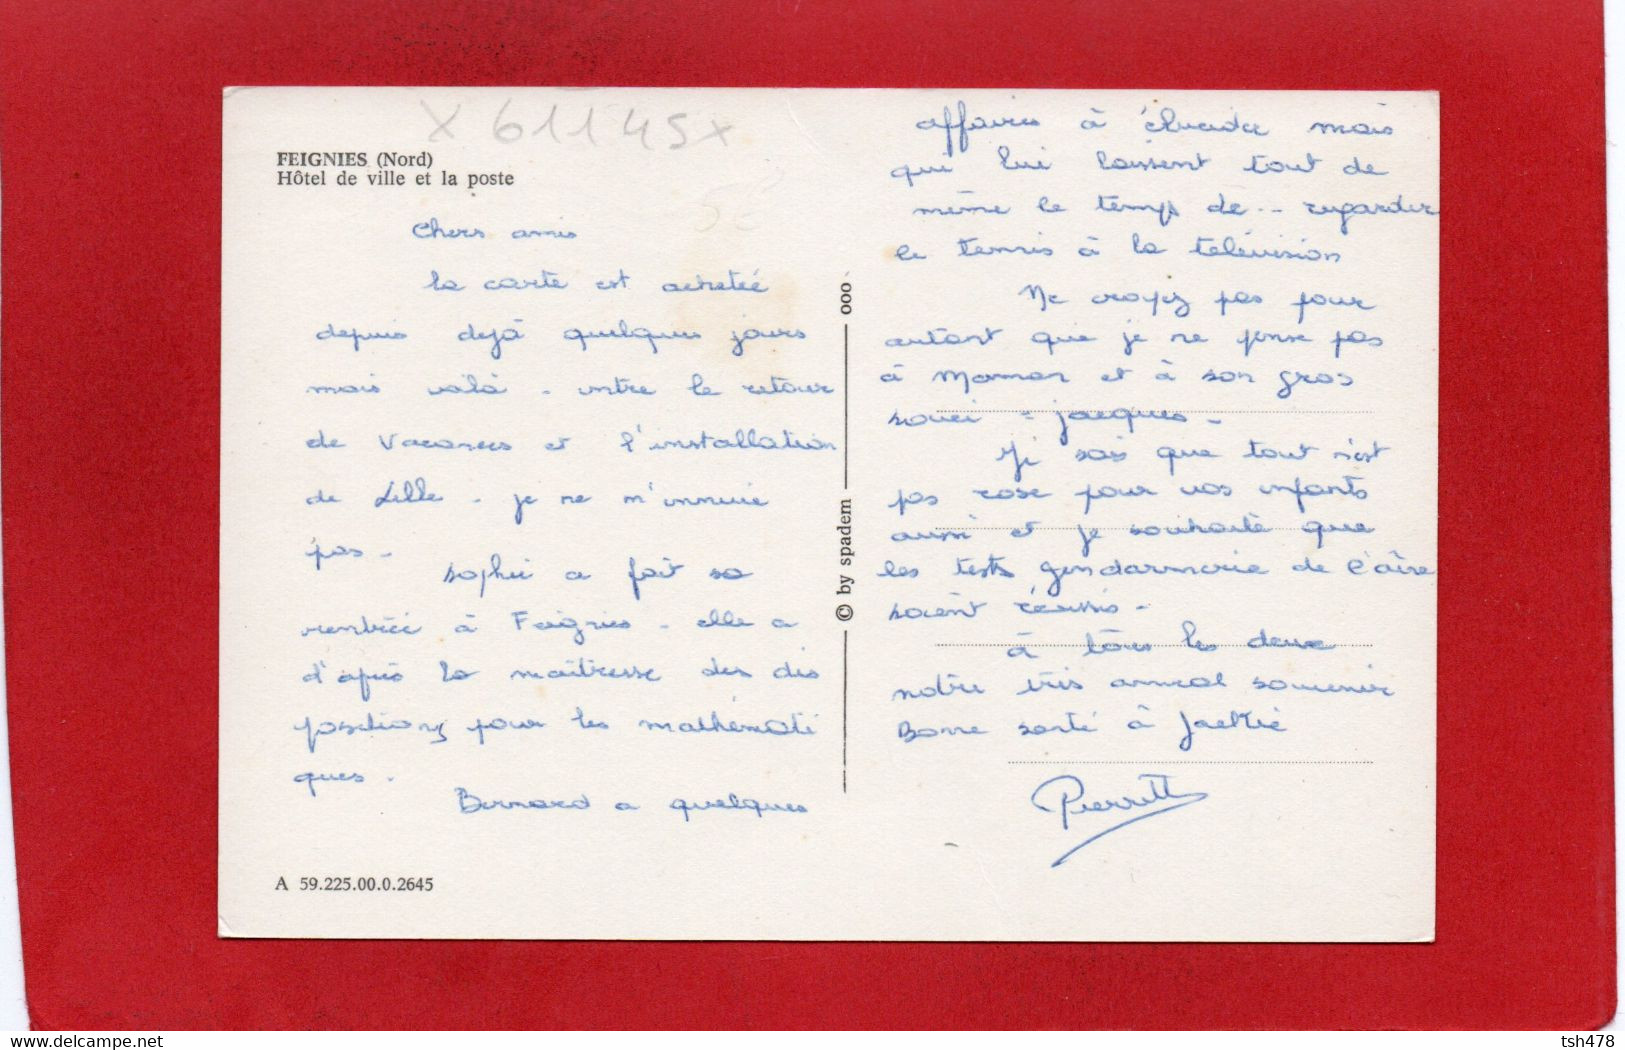 X 61145x
FEIGNIES (Nord)
Hôtel de ville et la poste
Chers amis
la carte est achetée
depuis dejà quelques jours
mais voilà - entre le retour
de Vacances et l'installation
de Lille - je ne m'ennuie
pas -
Sophie a fait sa
rentrée à Feignies - elle a
d'après la maîtresse des dis
positions pour les mathémati
ques -
Bernard a quelques
affaires à élucider mais
qui lui laissent tout de
même le temps de -- regarder
le tennis à la télévision
Ne croyez pas pour
autant que je ne pense pas
à Maman et à son gros
souci = jacques -
Je sais que tout n'est
pas rose pour vos enfants
aussi et je souhaite que
les tests gendarmerie de
soient réussis -
à tous les deux
notre très amical souvenir
Bonne santé à Jackie
Pierrette
© by spadem
ooó
A 59.225.00.0.2645
www.delcampe.net
tsh478